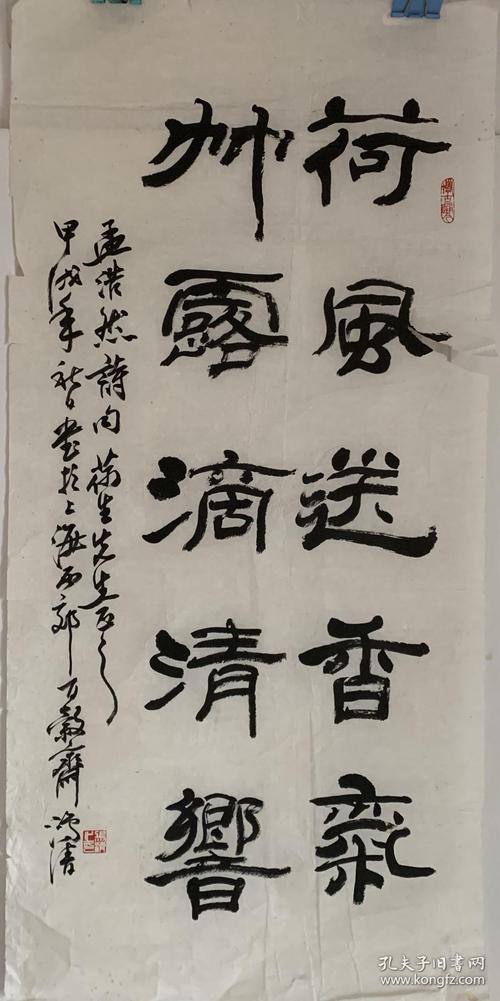 荷風送香氣
竹露滴清響
孟浩然詩句 生先生正之
甲戌年秋日書於上海西郊万穀齋 鴻清
孔夫子旧书网
www.kongfz.com